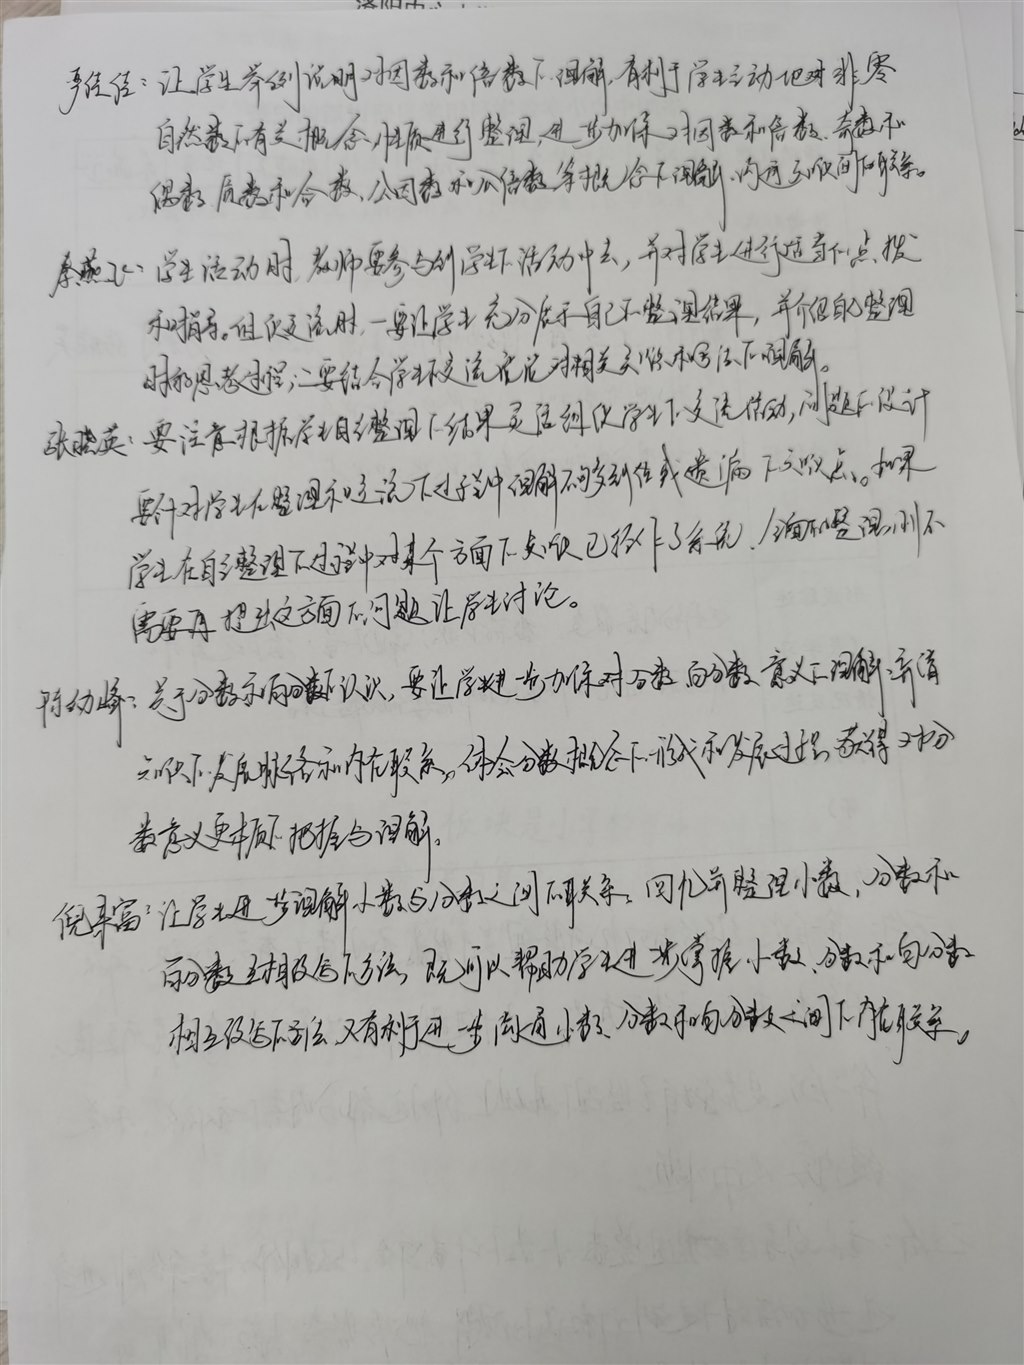 佳佳：让学生举例说明对因数和倍数的理解，有利于学生主动地对非零
自然数的有关概念、性质进行整理，进一步加深对因数和倍数、奇数和
偶数、质数和合数、公因数和公倍数等概念的理解，沟通知识间的联系。
蔡燕飞：学生活动时，教师要参与到学生的活动中去，并对学生进行适当的点拨
和指导。组织交流时，一要让学生充分展示自己的整理结果，并介绍自己整理
时的思考过程；二要结合学生的交流完善对相关知识和方法的理解。
张晓英：要注意根据学生自主整理的结果灵活组织学生的交流活动，问题的设计
要针对学生在整理和交流的过程中理解不够到位或遗漏的知识点。如果
学生在自主整理的过程中对某个方面的知识已经作了系统、全面的整理，则不
需要再提出这方面的问题让学生讨论。
陈幼峰：关于分数和百分数的认识，要让学生进一步加深对分数、百分数意义的理解，弄清
知识的发展脉络和内在联系，体会分数概念的形成和发展过程，获得对分
数意义更本质的把握与理解。
倪章富：让学生进一步理解小数与分数之间的联系。回忆并整理小数、分数和
百分数互相改写的方法，既可以帮助学生进一步掌握小数、分数和百分数
相互改写的方法，又有利于进一步沟通小数、分数和百分数之间的内在联系。